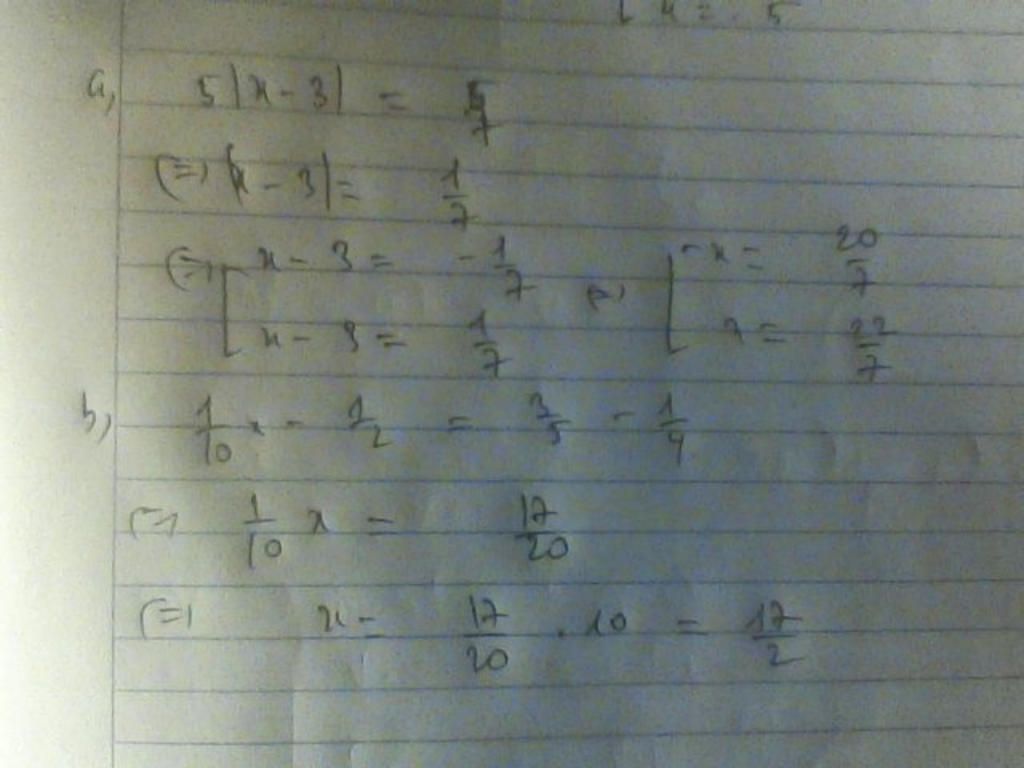 x = . 5
a, 5|x - 3| = 5/7
(=) |x - 3| = 1/7
(=) [ x - 3 = - 1/7 (=) [ x = 20/7
x - 3 = 1/7 x = 22/7
b, 1/10 x - 1/2 = 3/5 - 1/4
(=) 1/10 x = 17/20
(=) x = 17/20 . 10 = 17/2